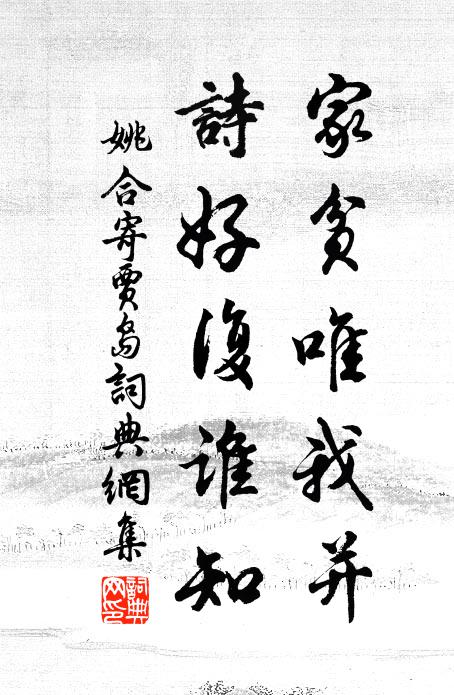 家貧唯我并
詩好復誰知
姚合寄賈島詞典網集
詞典网印